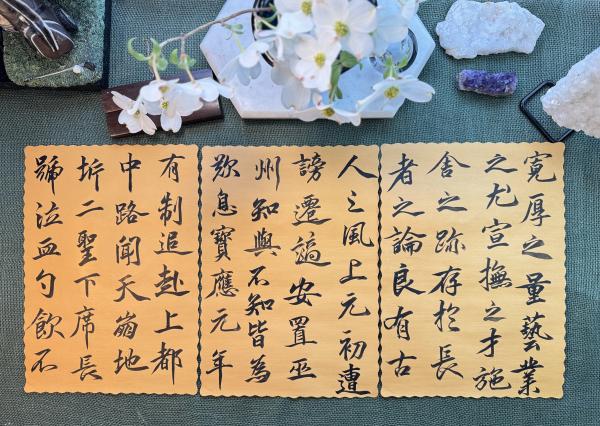 寬厚之量藝業
之尤宣撫之才施
舍之跡存於長
者之論良有古
人之風上元初遭
謗遷謫安置巫
州知與不知皆為
歎息寶應元年
有制追赴上都
中路聞天崩地
坼二聖下席長
號泣血勺飲不